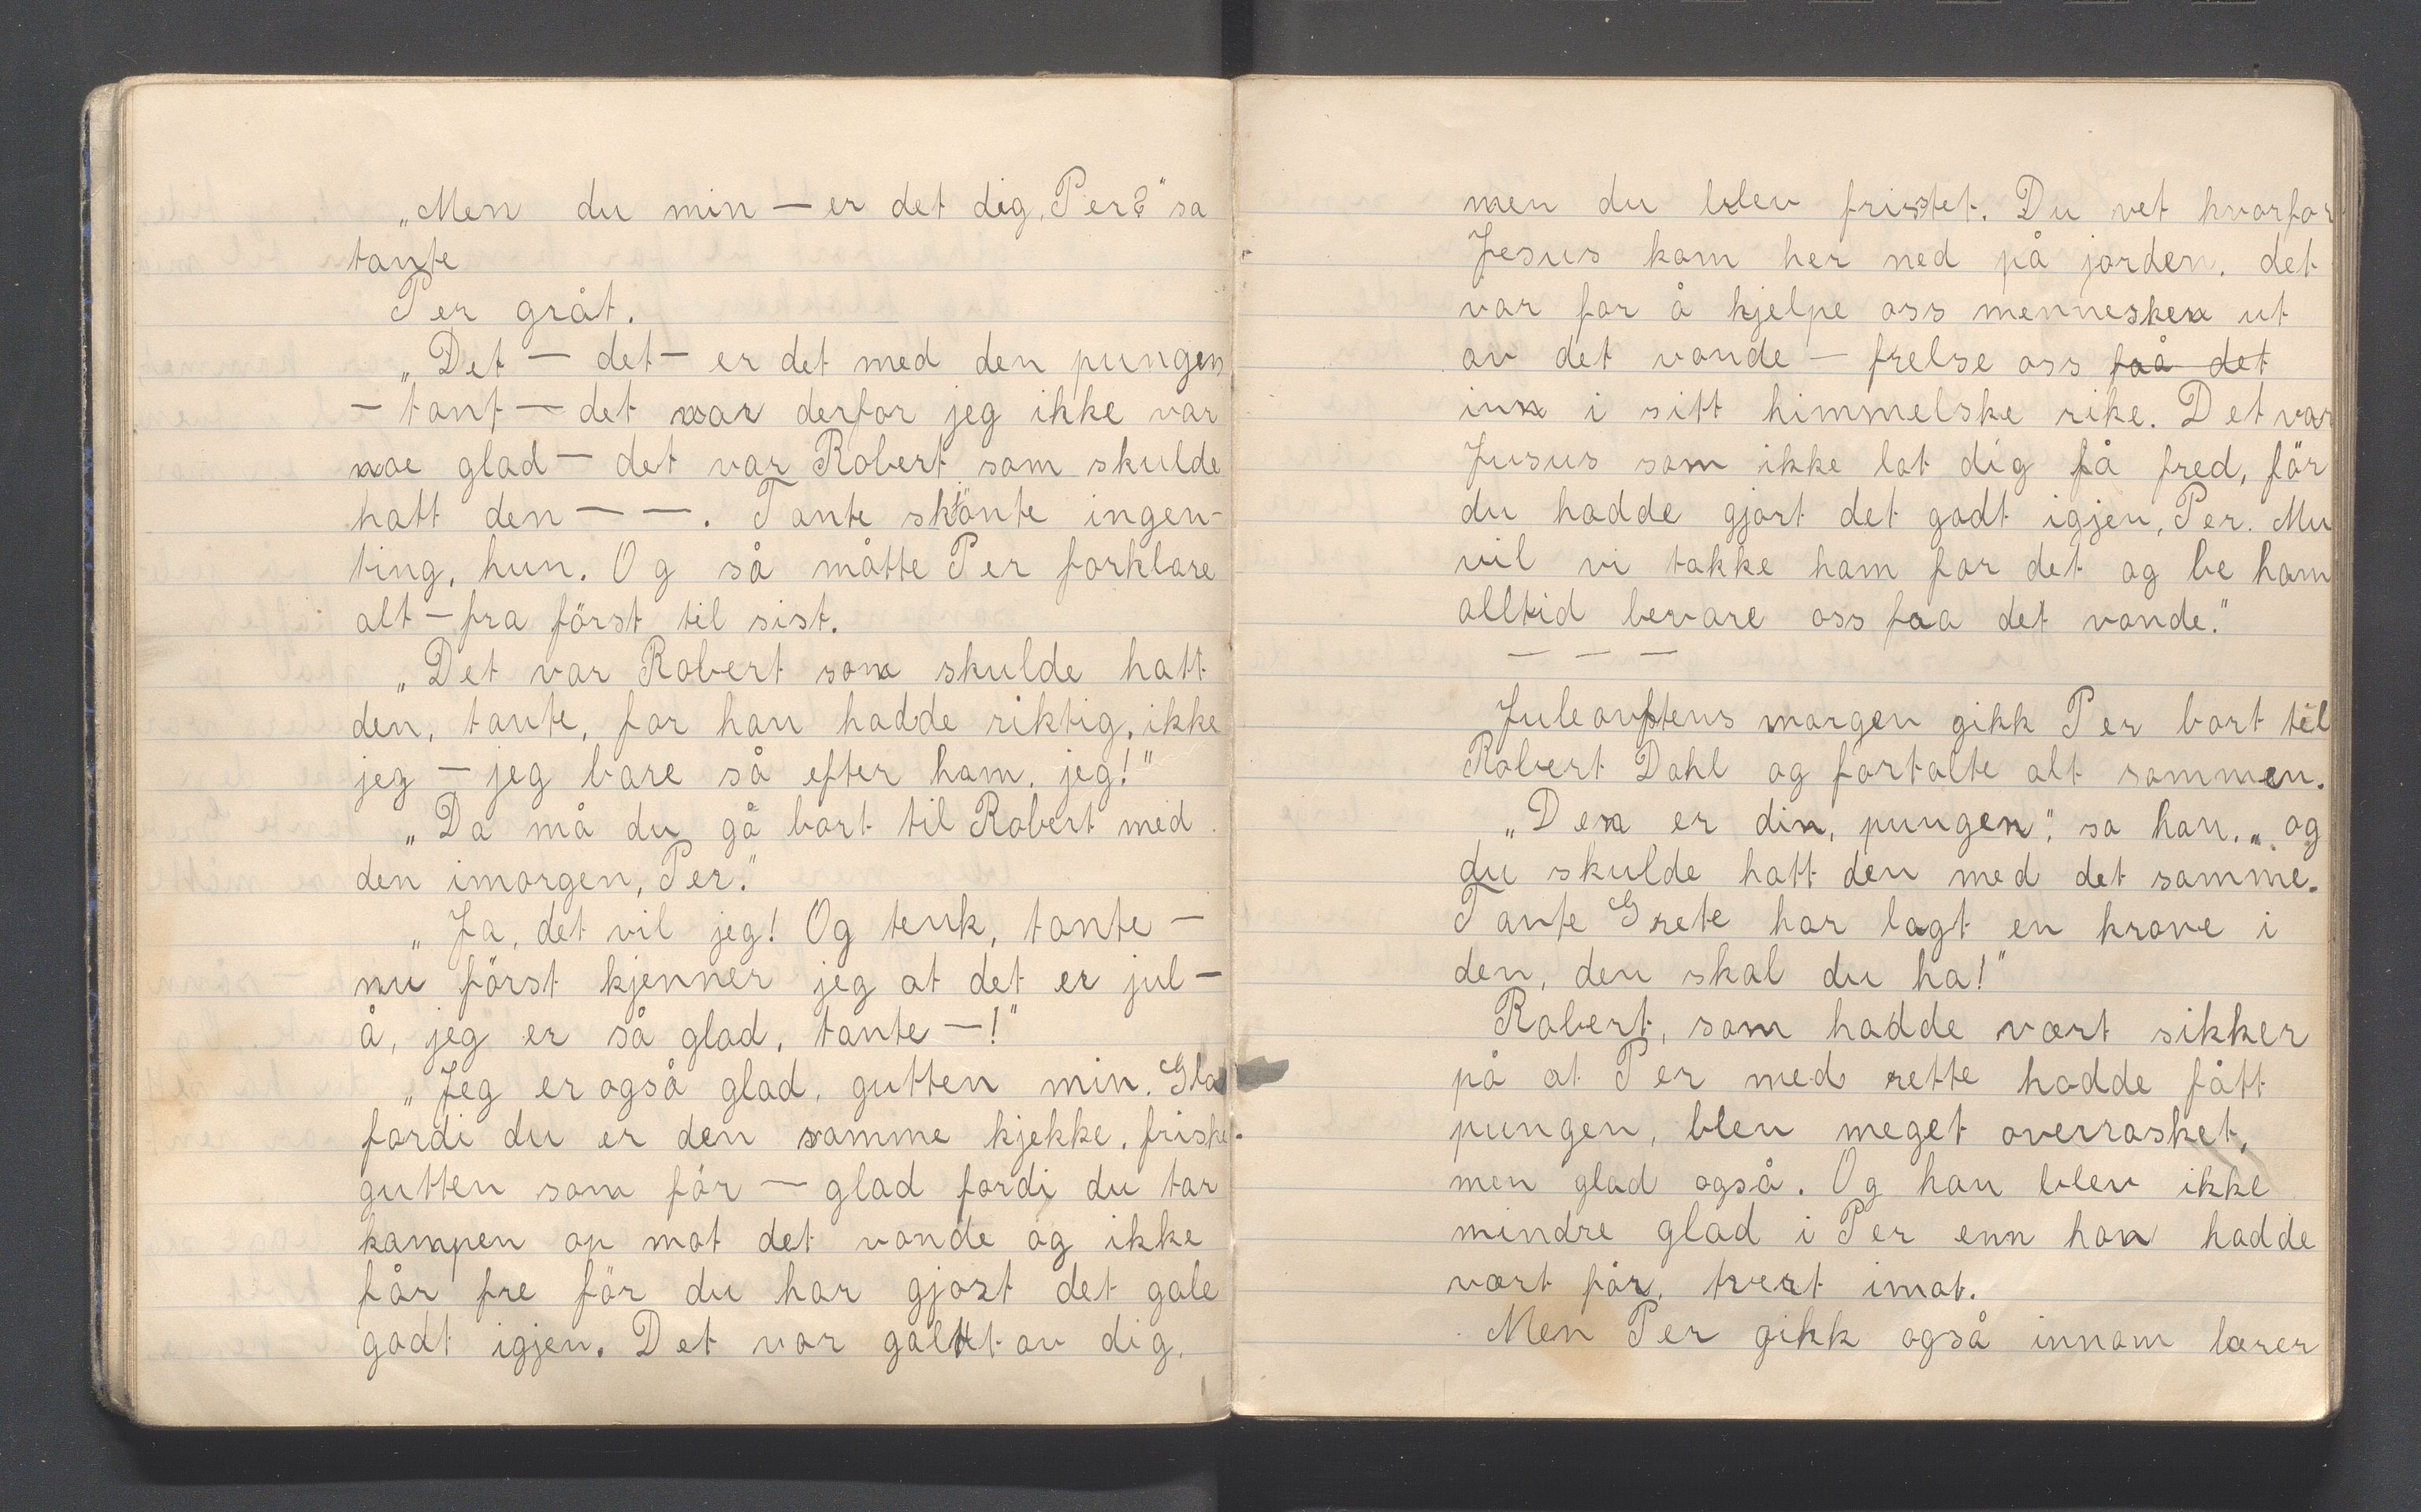 „Men du min — er det dig, Per?" sa
tante
Per gråt.
„Det — det — er det med den pungen
— tant — det var derfor jeg ikke var
noe glad — det var Robert som skulde
hatt den — —. Tante skjönte ingen-
ting, hun. Og så måtte Per forklare
alt — fra först til sist.
„Det var Robert som skulde hatt
den, tante, for han hadde riktig, ikke
jeg — jeg bare så efter ham, jeg!"
„Da må du gå bort til Robert med
den imorgen, Per."
„Ja, det vil jeg! Og tenk, tante —
nu först kjenner jeg at det er jul —
å, jeg er så glad, tante —!"
„Jeg er også glad, gutten min. Glad
fordi du er den samme kjekke, friske
gutten som för — glad fordi du tar
kampen op mot det vonde og ikke
får fre för du har gjort det gale
godt igjen. Det var galt av dig,
men du blev fristet. Du vet hvorfor
Jesus kom her ned på jorden, det
var for å hjelpe oss mennesker ut
av det vonde — frelse oss frå det
inn i sitt himmelske rike. Det var
Jusus som ikke lot dig få fred, för
du hadde gjort det godt igjen, Per. Mu
vil vi takke ham for det og be ham
alltid bevare oss fra det vonde."
— — —
Juleavftens morgen gikk Per bort til
Robert Dahl og fortalte alt sammen.
„Den er din, pungen", sa han, „og
du skulde hatt den med det samme.
Tante Grete har lagt en krone i
den, den skal du ha!"
Robert, som hadde vært sikker
på at Per med rette hadde fått
pungen, blev meget overrasket,
men glad også. Og han blev ikke
mindre glad i Per enn han hadde
vært för, tvert imot.
Men Per gikk også innom lærer